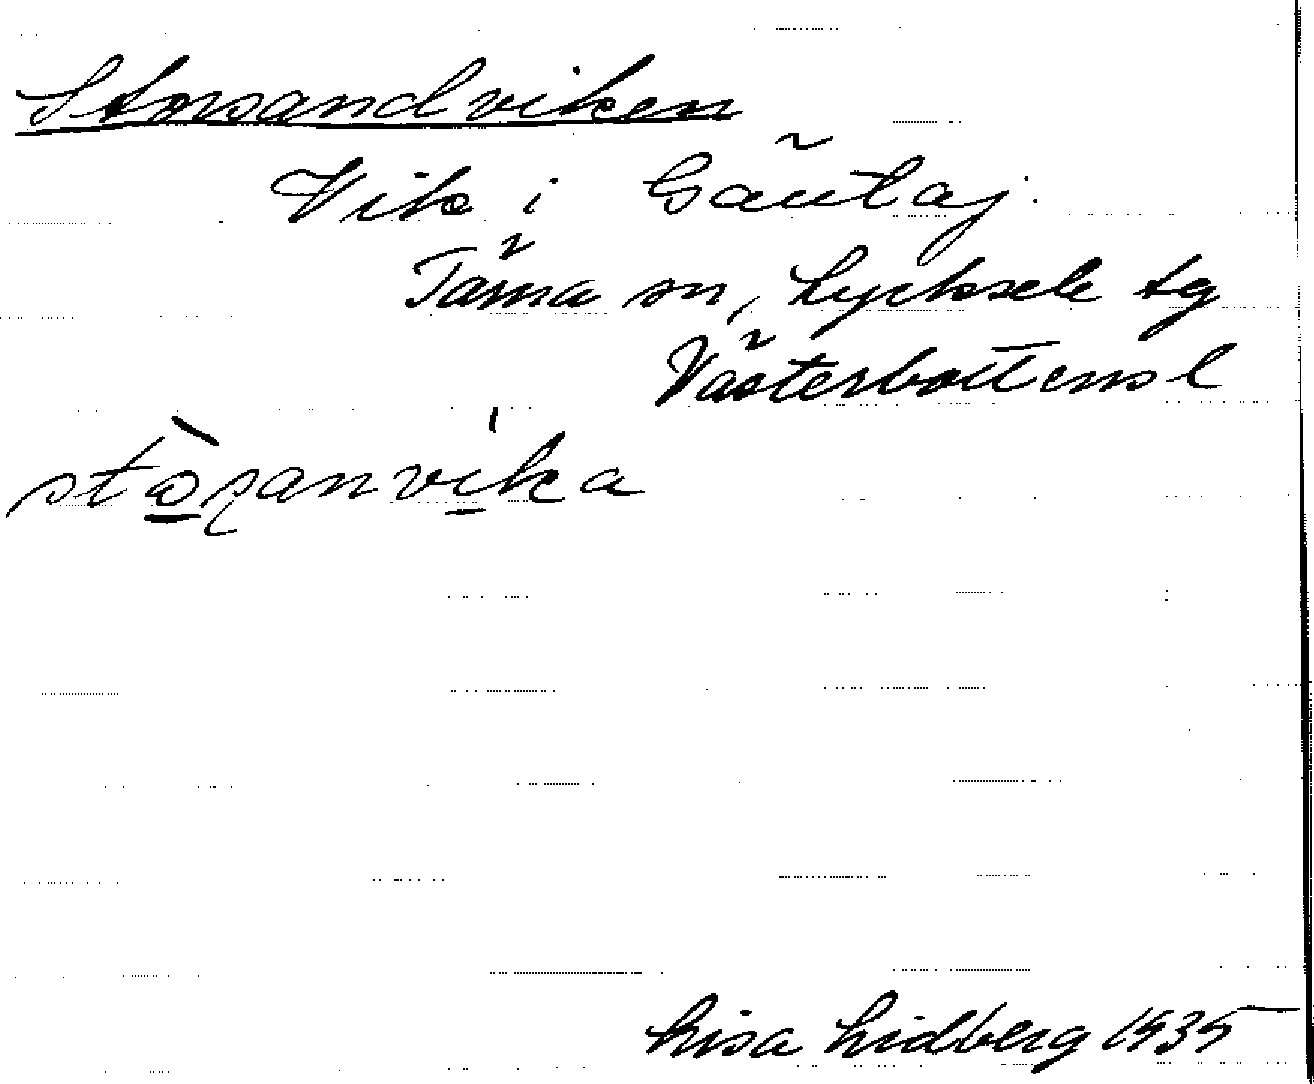 Storsandviken
Vik i Gäutaj.
Tärna sn, Lycksele tg
Västerbottens l
stòʂanvíka
Lisa Lidberg 1935